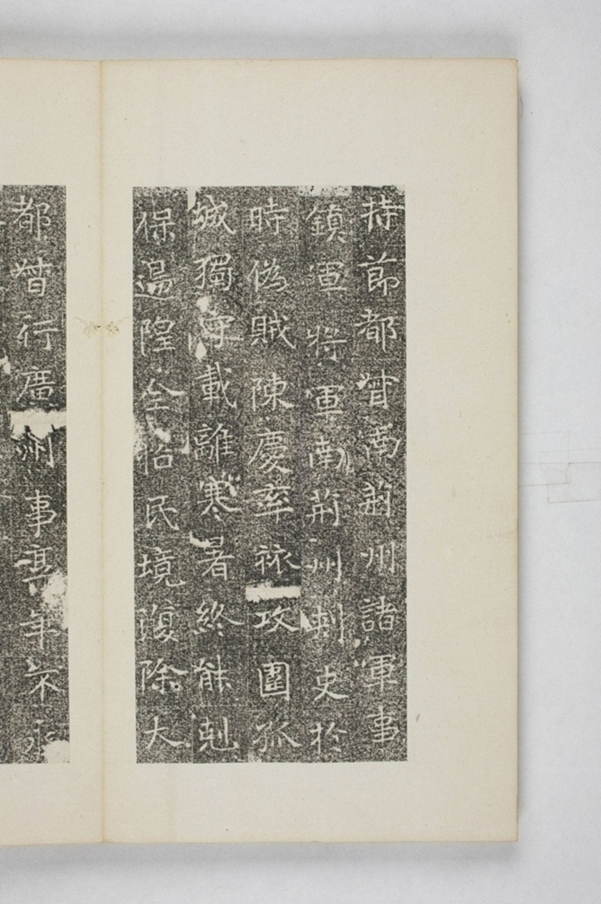 持節都督南荊州諸軍事
鎮軍將軍南荊州刾史於
時偽賊陳慶率旅攻圍孤
城獨守載離寒暑終能剋
保邊隍全怡民境復除大
都督行廣州事享年不永